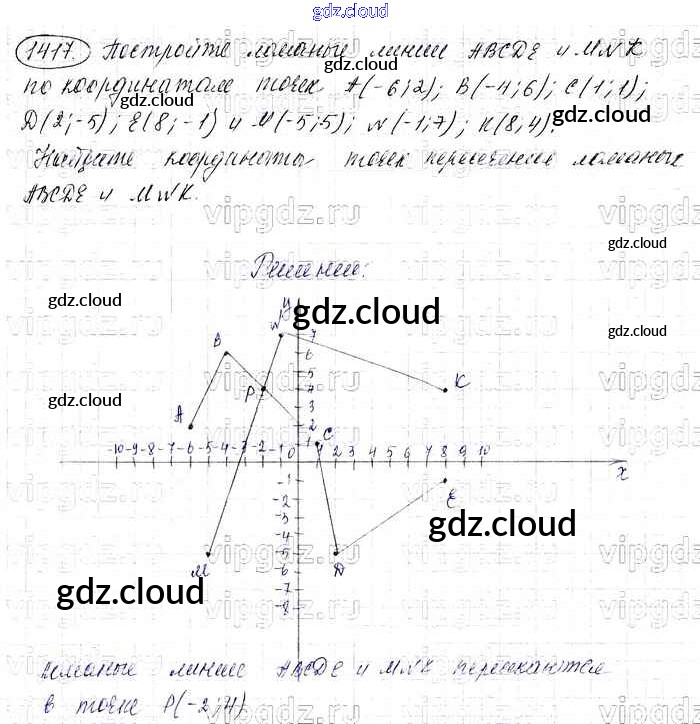 gdz.cloud
1417. Постройте ломаные линии ABCDE и MNK
по координатам точек A(-6;2); B(-4;6); C(1;1);
D(2;-5); E(8;-1) и M(-5;5); N(-1;7); K(8;4).
Найдите координаты точек пересечения ломаных
ABCDE и MNK.
vipgdz.ru
Решение:
gdz.cloud
gdz.cloud
gdz.cloud
gdz.cloud
gdz.cloud
gdz.cloud
gdz.cloud
N y
7
B 6
5
P 4 K
3
A 2
1 C
-10 -9 -8 -7 -6 -5 -4 -3 -2 -1 0 1 2 3 4 5 6 7 8 9 10
x
-1
E
-2
-3
-4
-5
M D
-6
-7
-8
Ломаные линии ABCDE и MNK пересекаются
в точке P(-2;4)